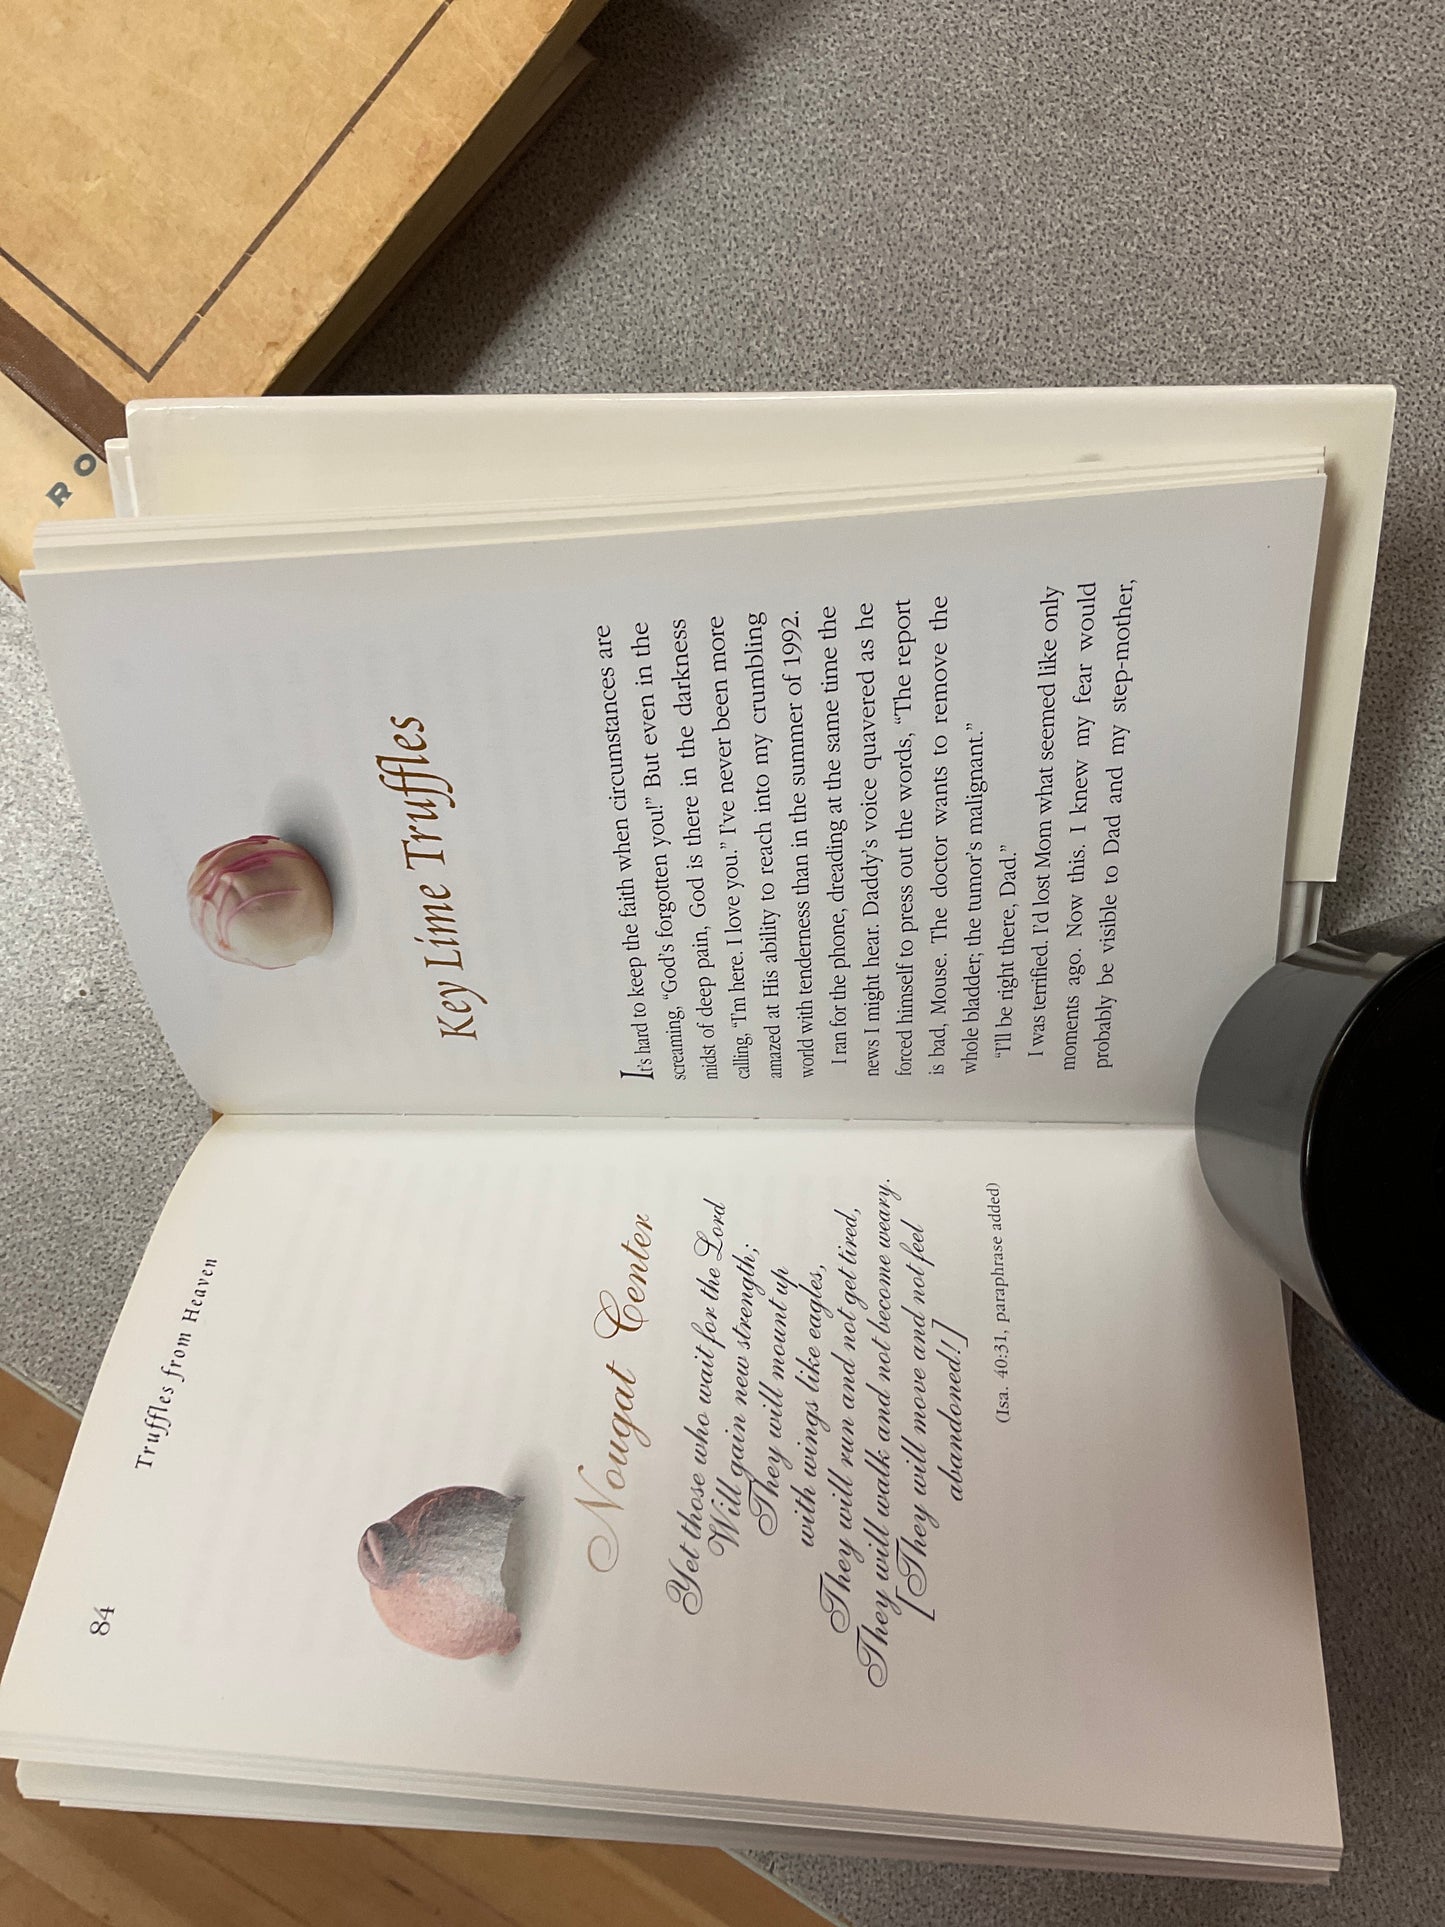 84
Truffles from Heaven
Nougat Center
Yet those who wait for the Lord
Will gain new strength;
They will mount up
with wings like eagles,
They will run and not get tired,
They will walk and not become weary.
[They will move and not feel
abandoned!]
(Isa. 40:31, paraphrase added)
Key Lime Truffles
It's hard to keep the faith when circumstances are
screaming, “God's forgotten you!” But even in the
midst of deep pain, God is there in the darkness
calling, “I'm here. I love you.” I've never been more
amazed at His ability to reach into my crumbling
world with tenderness than in the summer of 1992.
I ran for the phone, dreading at the same time the
news I might hear. Daddy's voice quavered as he
forced himself to press out the words, “The report
is bad, Mouse. The doctor wants to remove the
whole bladder; the tumor's malignant.”
“I'll be right there, Dad.”
I was terrified. I'd lost Mom what seemed like only
moments ago. Now this. I knew my fear would
probably be visible to Dad and my step-mother,
RO